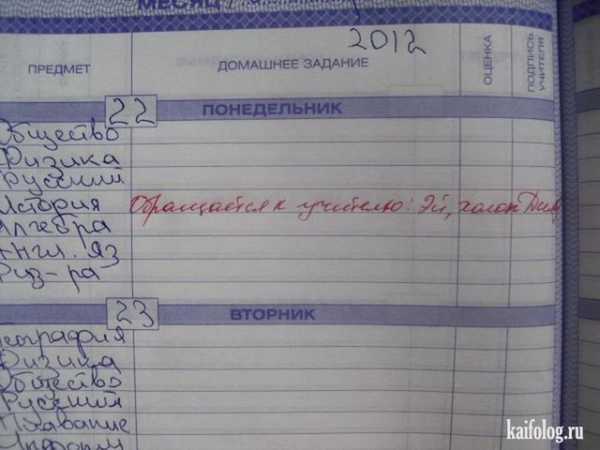 МЕСЯЦ
2012
ПРЕДМЕТ ДОМАШНЕЕ ЗАДАНИЕ ОЦЕНКА ПОДПИСЬ УЧИТЕЛЯ
22 ПОНЕДЕЛЬНИК
Общество
Физика
Русский
История Обращается к учителю: Эй, холоп
Алгебра
Англ. яз
Физ-ра
23 ВТОРНИК
География
Физика
Общество
Русский
Плавание
Информ
kaifolog.ru